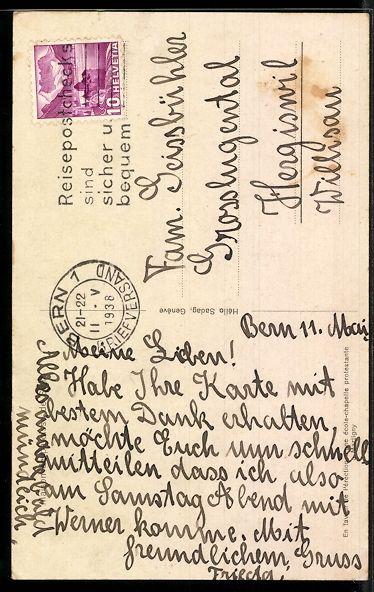 10 HELVETIA
Reisepostchecks
sind
sicher u
bequem
BERN 1
21-22
11·V
1938
BRIEFVERSAND
Fam. Geissbühler
Grosslugental
Hergiswil
Willisau
Hélio Sadag, Genève
Bern 11. Mai
Meine Lieben!
Habe Ihre Karte mit
bestem Dank erhalten,
möchte Euch nun schnell
mitteilen dass ich also
am Samstag Abend mit
Werner komme. Mit
freundlichem Gruss
Frieda.
Alles
mündlich.
En faveur de l'érection d'une école-chapelle protestante